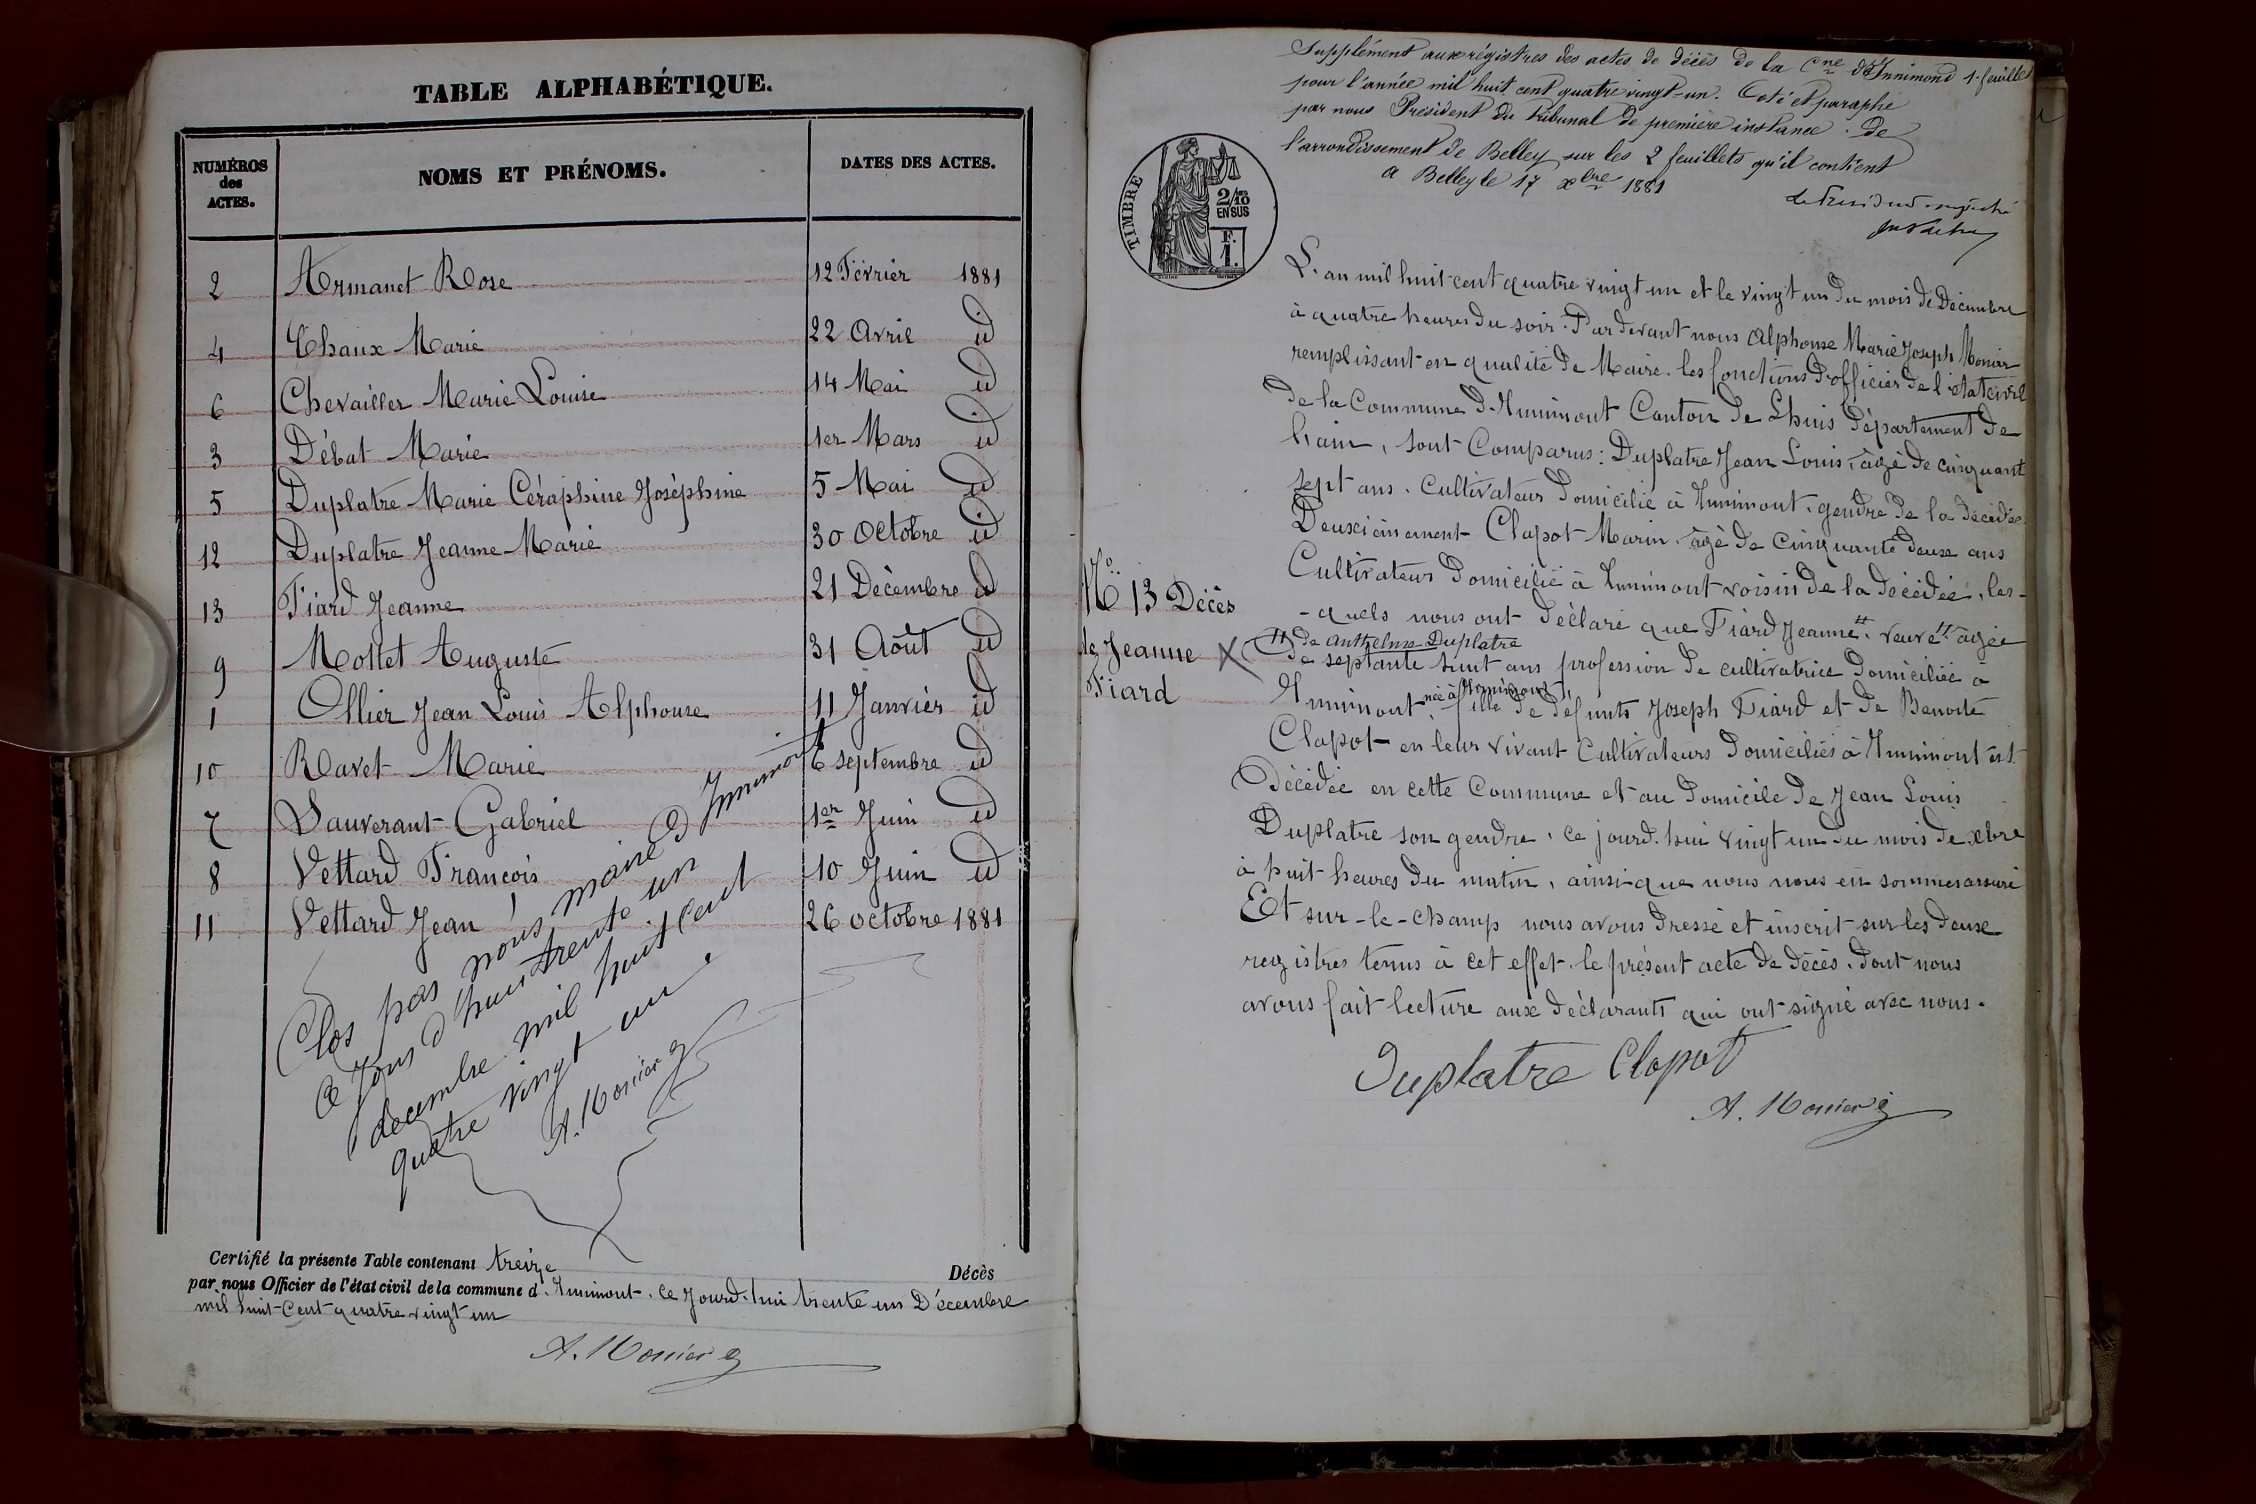 TABLE ALPHABÉTIQUE.
NUMÉROS
des
ACTES.
NOMS ET PRÉNOMS.
DATES DES ACTES.
2 Armanet Rose 12 Février 1881
4 Chaux Marie 22 Avril id
6 Chevailler Marie Louise 14 Mai id
3 Débat Marie 1er Mars id
5 Duplatre Marie Céraphine Joséphine 5 Mai id
12 Duplatre Jeanne-Marie 30 Octobre id
13 Fiard Jeanne 21 Décembre id
9 Mottet Auguste 31 Août id
1 Ollier Jean Louis Alphonse 11 Janvier id
10 Ravet Marie 6 septembre id
7 Sauverant Gabriel 1er Juin id
8 Vettard François 10 Juin id
11 Vettard Jean 26 octobre 1881
Clos par nous maire d'Innimont
ce jour d'hui trente un
décembre mil huit cent
quatre vingt un.
A. Monier
Certifié la présente Table contenant treize Décès
par nous Officier de l'état civil de la commune d. Innimont. ce jourd.hui trente un Décembre
mil huit-Cent quatre vingt un
A. Monier
Supplément aux régistres des actes de décès de la Cne d'Innimond 1. feuillet
pour l'année mil huit cent quatre vingt-un. Coté et paraphé
par nous Président du Tribunal de première instance de
l'arrondissement de Belley sur les 2 feuillets qu'il contient
A Belley le 17 xbre 1881
Le Président
TIMBRE
2/10
EN SUS
F.
1.
L'an mil huit cent quatre vingt un et le vingt un du mois de Décembre
à quatre heures du soir. Par devant nous Alphonse Marie Joseph Monier
remplissant en qualité de Maire. les fonctions d'officier de l'état civil
de la Commune d'Innimont Canton de Lhuis Département de
l'ain, sont Comparus: Duplatre Jean Louis, âgé de cinquant
sept ans. Cultivateur domicilié à Innimont. gendre de la décédée
Deuxièmement Clapot Marin. âgé de Cinquante deux ans
Cultivateur domicilié à Innimont voisin de la décédée, les-
N° 13 Décès
de Jeanne
Fiard
-quels nous ont déclaré que Fiard Jeanne veuve âgée
de anthelme Duplatre
de septante huit ans profession de cultivatrice domiciliée à
née à Innimont,
Innimont, fille de défunts Joseph Fiard et de Benoite
Clapot en leur vivant Cultivateurs domiciliés à Innimont est
Décédée en cette Commune et au domicile de Jean Louis
Duplatre son gendre, ce jourd.hui vingt un du mois de xbre
à huit heures du matin, ainsi que nous nous en sommes assuré
Et sur-le-champ nous avons dressé et inscrit sur les deux
registres tenus à cet effet. le présent acte de décès. dont nous
avons fait lecture aux déclarants qui ont signé avec nous.
Duplatre Clapot
A. Monier